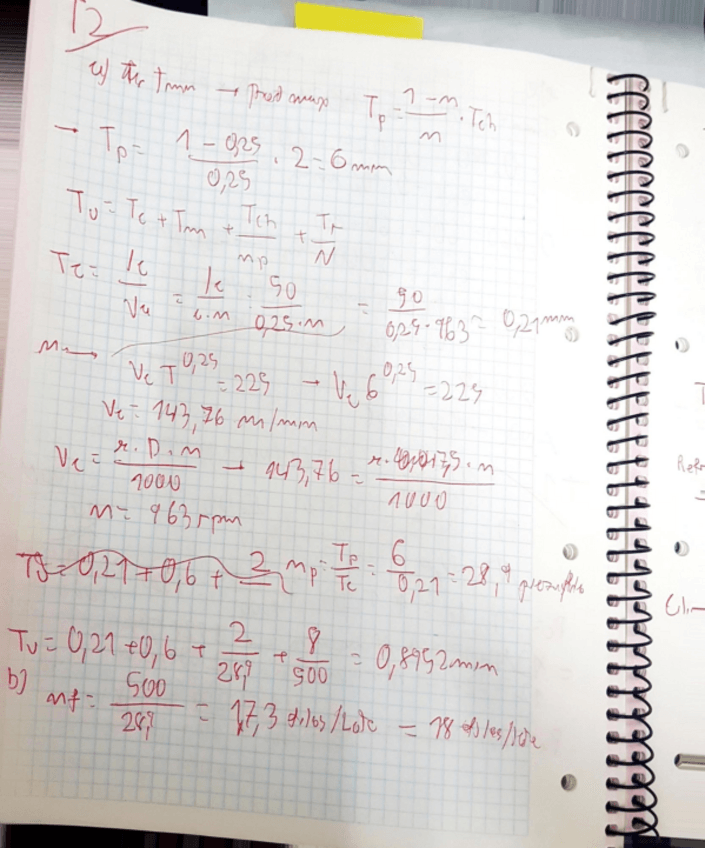 12
a) Tmin → Prod max Tp = (1-n)/n · Tch
→ Tp = (1-0,25)/0,25 · 2 = 6 min
Tu = Tc + Tm + Tch/np + Tr/N
Tc = lc/Va = lc/(a·n) = 50/(0,25·n) = 50/(0,25·963) = 0,21 min
n →
Vc T^0,25 = 225 → Vc 6^0,25 = 225
Vc = 143,76 m/min
Vc = π·D·n/1000 → 143,76 = π· ·n/1000
n = 963 rpm
TS = 0,21 + 0,6 + 2
np = Tp/Tc = 6/0,21 = 28,9
Tu = 0,21 + 0,6 + 2/28,9 + 8/500 = 0,8952 min
b) nf = 500/28,9 = 17,3 filos/Lote = 18 filos/lote